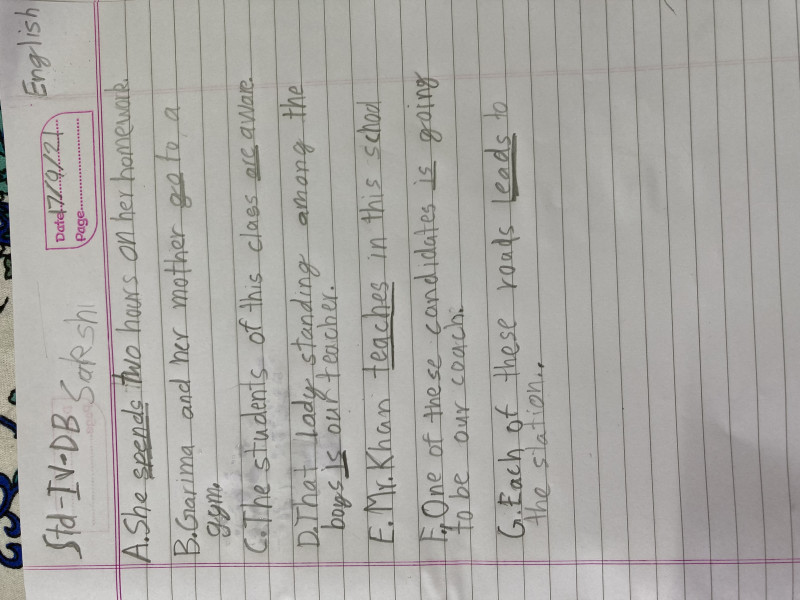 English
Date 7/9/21
Page
Std-IV-DB Sakshi
A. She spends two hours on her homework.
B. Garima and her mother go to a
gym.
C. The students of this class are aware.
D. That Lady standing among the
boys is our teacher.
E. Mr. Khan teaches in this school
F. One of these candidates is going
to be our coach.
G. Each of these roads leads to
the station.